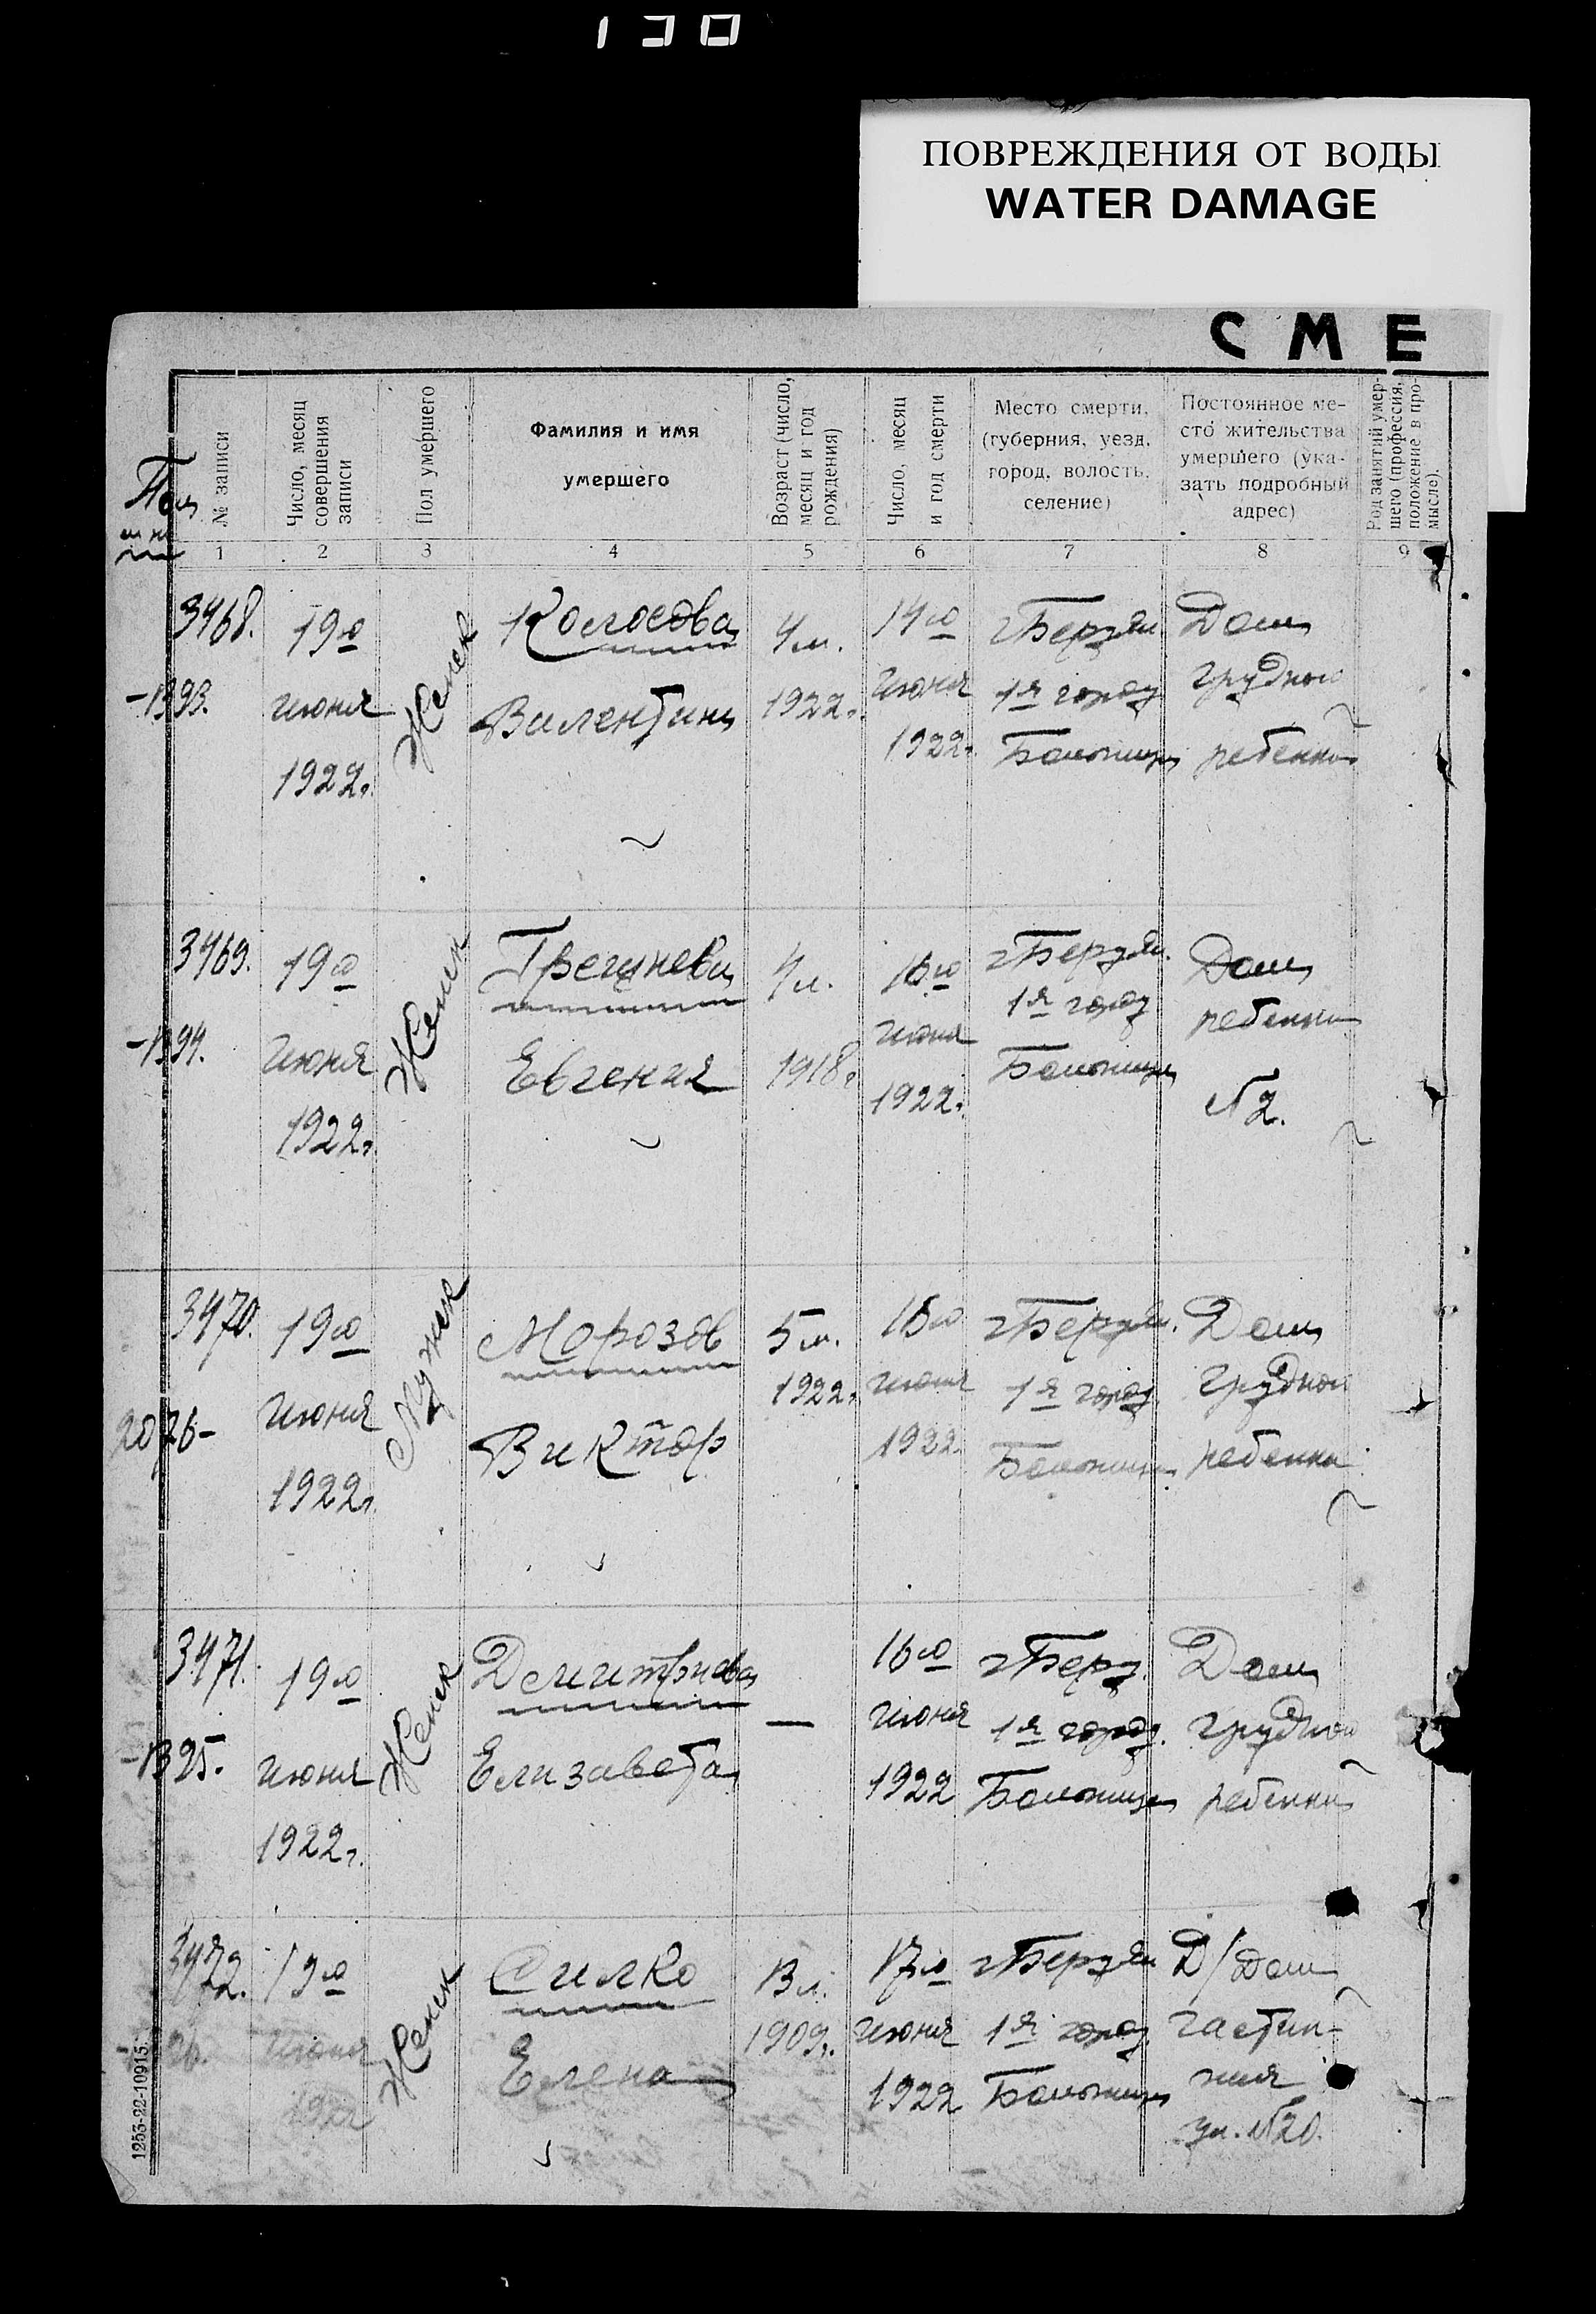 130
ПОВРЕЖДЕНИЯ ОТ ВОДЫ
WATER DAMAGE
СМЕ
№ записи
Число, месяц
совершения
записи
Пол умершего
Фамилия и имя
умершего
Возраст (число,
месяц и год
рождения)
Число, месяц
и год смерти
Место смерти,
(губерния, уезд,
город, волость,
селение)
Постоянное ме-
сто жительства
умершего (ука-
зать подробный
адрес)
Род занятий умер-
шего (профессия,
положение в про-
мысле).
1 2 3 4 5 6 7 8 9
3468.
-1393.
19го
июня
1922г.
Женск
Колосова
Валентина
4 м.
1922г.
14го
июня
1922г.
г Бердян.
1я город
Больница
Дом
грудного
ребенка
3469.
-1394.
19го
июня
1922г.
Женск
Евгения
4 л.
1918г
16го
июня
1922г.
г Бердян.
1я город
Больница
Дом
ребенка
№2.
3470.
2076-
19го
июня
1922г.
Мужск
Морозов
Виктор
5 м.
1922г.
16го
июня
1922
г Бердян.
1я город.
Больница
Дом
грудного
ребенка
3471.
-1395.
19го
июня
1922г.
Женск
Дмитриева
Елизавета
—
16го
июня
1922
г Берд.
1я город.
Больница
Дом
грудного
ребенка
3472.
19го
июня
1922
Женск
Силко
Елена
13 л.
1909г.
17го
июня
1922
г Бердян
1я город.
Больница
Д/дом
ул. №20.
1253-22-10915.